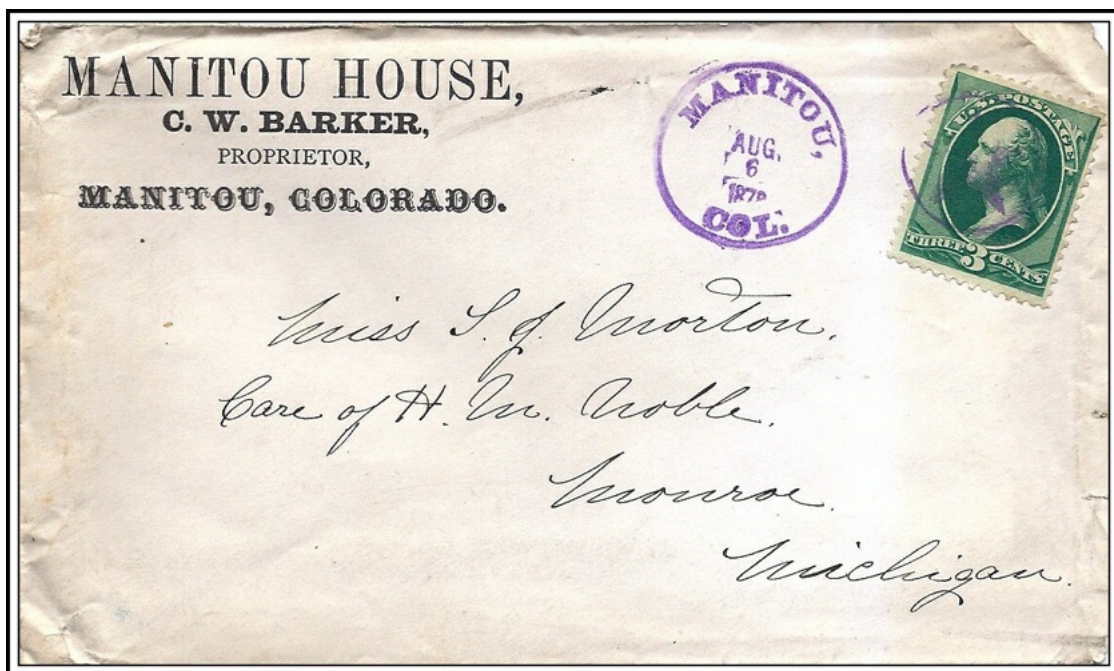 MANITOU HOUSE,
C. W. BARKER,
PROPRIETOR,
MANITOU, COLORADO.
MANITOU,
AUG.
6
COL.
U.S. POSTAGE
THREE 3 CENTS
Miss S. J. Morton.
Care of H. M. Noble.
Monroe
Michigan.